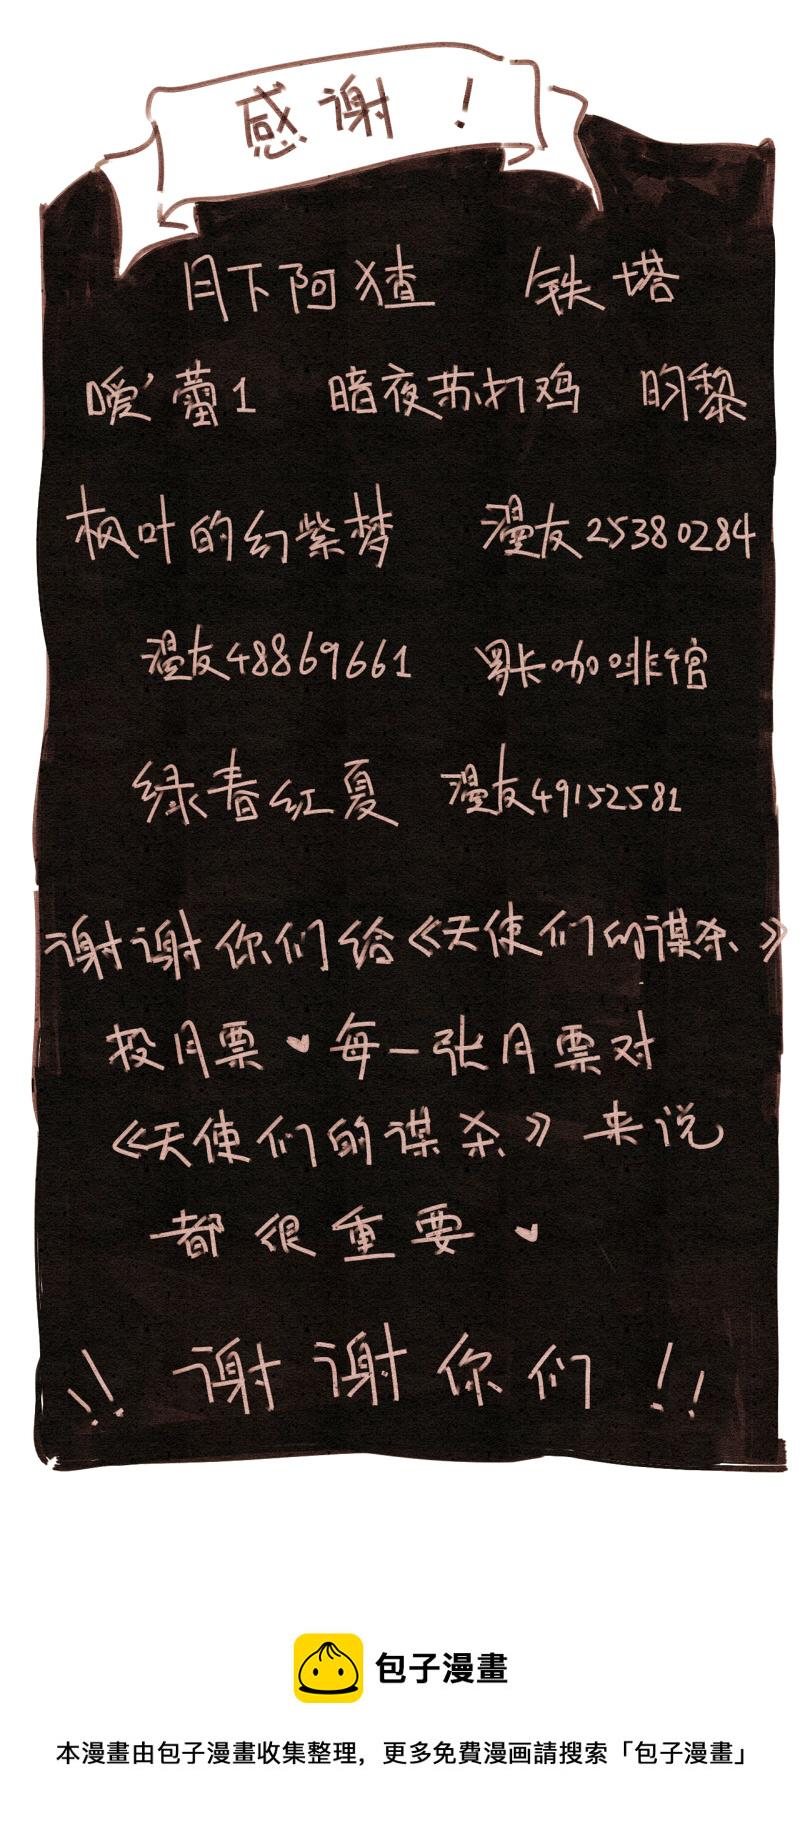 感谢！
月下阿猹 铁塔
嗳’蕾1 暗夜苏打鸡 昀黎
枫叶的幻紫梦 漫友25380284
漫友48869661 咖啡馆
绿春红夏 漫友49152581
谢谢你们给《天使们的谋杀》
投月票♥每一张月票对
《天使们的谋杀》来说
都很重要♥
!! 谢谢你们 !!
包子漫畫
本漫畫由包子漫畫收集整理，更多免費漫画請搜索「包子漫畫」